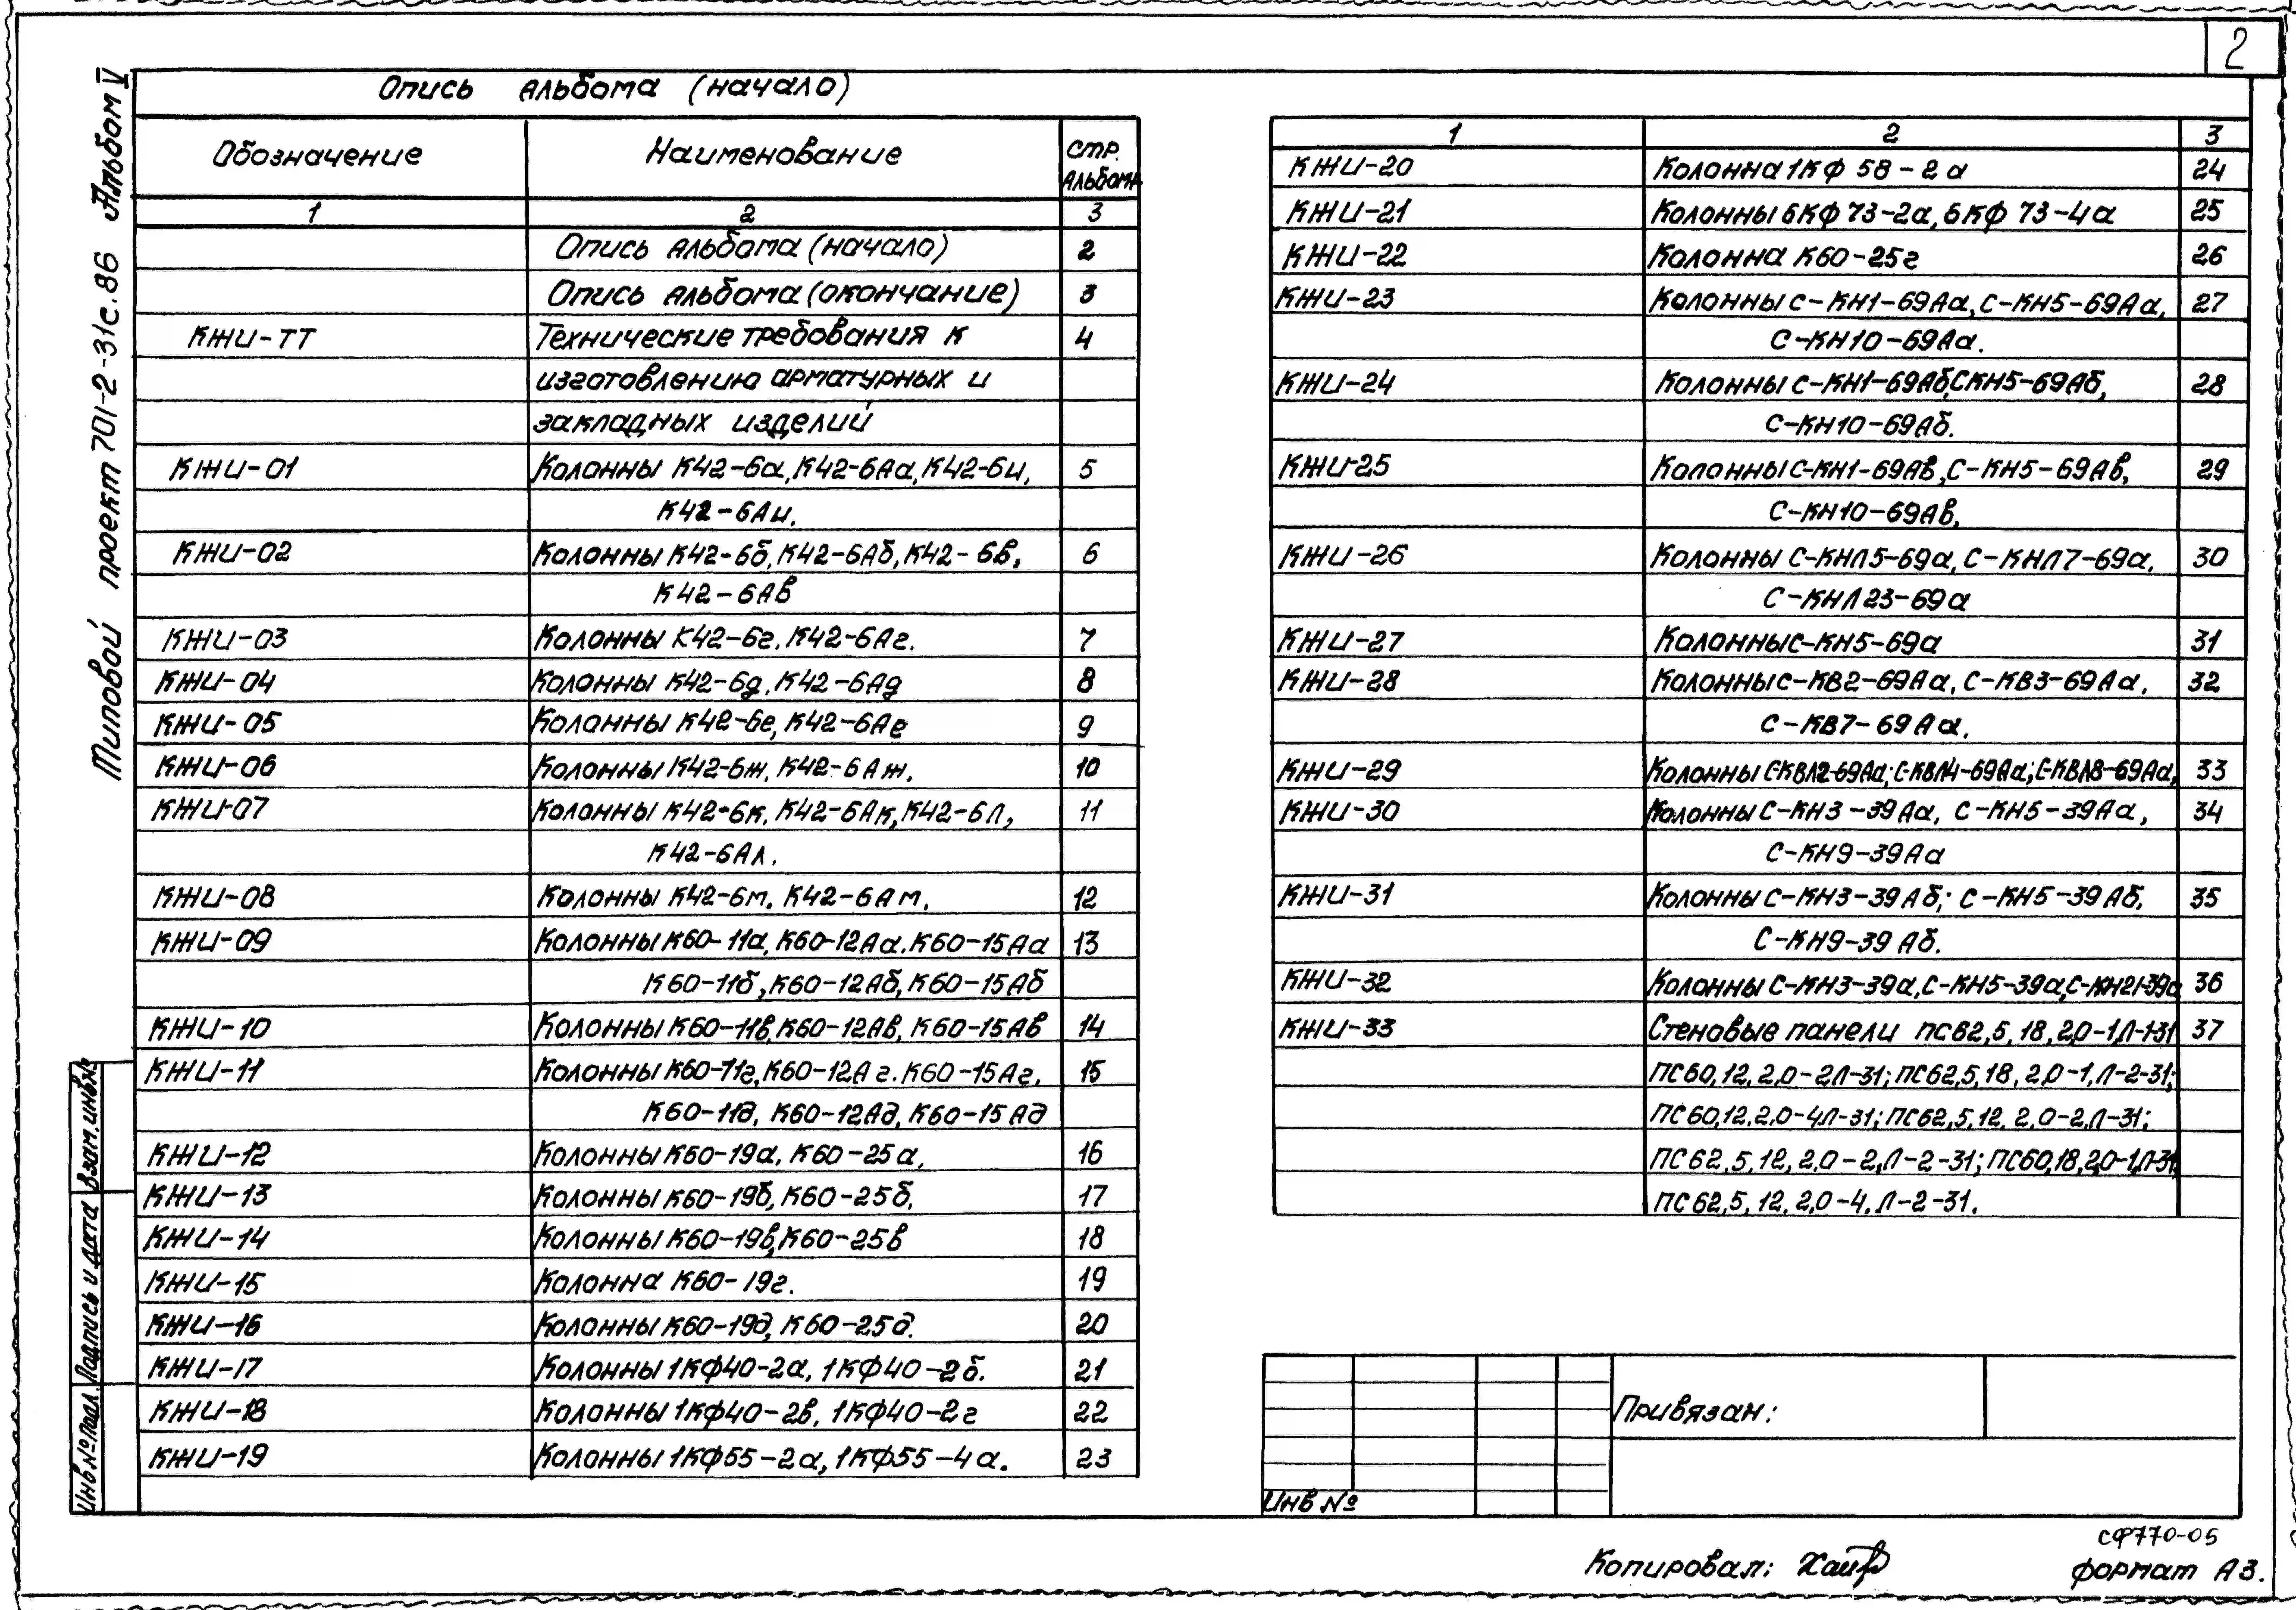 2
Типовой проект 701-2-31с.86 Альбом IV
Опись альбома (начало)
Обозначение Наименование стр. альбома
1 2 3
Опись альбома (начало) 2
Опись альбома (окончание) 3
КЖИ-ТТ Технические требования к 4
изготовлению арматурных и
закладных изделий
КЖИ-01 Колонны К42-6а, К42-6Аа, К42-6и, 5
К42-6Аи.
КЖИ-02 Колонны К42-6б, К42-6Аб, К42-6в, 6
К42-6Ав
КЖИ-03 Колонны К42-6г. К42-6Аг. 7
КЖИ-04 Колонны К42-6д, К42-6Ад 8
КЖИ-05 Колонны К42-6е, К42-6Ае 9
КЖИ-06 Колонны К42-6ж, К42-6Аж. 10
КЖИ-07 Колонны К42-6к, К42-6Ак, К42-6Л, 11
К42-6Ал.
КЖИ-08 Колонны К42-6м, К42-6Ам. 12
КЖИ-09 Колонны К60-11а, К60-12Аа. К60-15Аа 13
К60-11б, К60-12Аб, К60-15Аб
КЖИ-10 Колонны К60-11в, К60-12Ав, К60-15Ав 14
КЖИ-11 Колонны К60-11г, К60-12Аг. К60-15Аг, 15
К60-11д, К60-12Ад, К60-15Ад
КЖИ-12 Колонны К60-19а, К60-25а, 16
КЖИ-13 Колонны К60-19б, К60-25б, 17
КЖИ-14 Колонны К60-19в, К60-25в 18
КЖИ-15 Колонна К60-19г. 19
КЖИ-16 Колонны К60-19д, К60-25д. 20
КЖИ-17 Колонны 1КФ40-2а, 1КФ40-2б. 21
КЖИ-18 Колонны 1КФ40-2в, 1КФ40-2г 22
КЖИ-19 Колонны 1КФ55-2а, 1КФ55-4а. 23
1 2 3
КЖИ-20 Колонна 1КФ 58-2а 24
КЖИ-21 Колонны 6КФ 73-2а, 6КФ 73-4а 25
КЖИ-22 Колонна К60-25г 26
КЖИ-23 Колонны С-КН1-69Аа, С-КН5-69Аа, 27
С-КН10-69Аа.
КЖИ-24 Колонны С-КН1-69Аб, СКН5-69Аб, 28
С-КН10-69Аб.
КЖИ-25 Колонны С-КН1-69Ав, С-КН5-69Ав, 29
С-КН10-69Ав,
КЖИ-26 Колонны С-КНЛ5-69а, С-КНЛ7-69а, 30
С-КНЛ23-69а
КЖИ-27 Колонны С-КН5-69а 31
КЖИ-28 Колонны С-КВ2-69Аа, С-КВ3-69Аа, 32
С-КВ7-69Аа.
КЖИ-29 Колонны С-КВЛ2-69Аа; С-КВЛ4-69Аа; С-КВЛ8-69Аа, 33
КЖИ-30 Колонны С-КН3-39Аа, С-КН5-39Аа, 34
С-КН9-39Аа
КЖИ-31 Колонны С-КН3-39Аб; С-КН5-39Аб, 35
С-КН9-39Аб.
КЖИ-32 Колонны С-КН3-39а, С-КН5-39а, С-КН21-39а 36
КЖИ-33 Стеновые панели ПС62,5,18,2,0-1Л-1-31 37
ПС60,12,2,0-2Л-31; ПС62,5,18,2,0-1,Л-2-31;
ПС60,12,2,0-4Л-31; ПС62,5,12,2,0-2,Л-31;
ПС62,5,12,2,0-2,Л-2-31; ПС60,18,2,0-1,Л-31
ПС62,5,12,2,0-4,Л-2-31.
Привязан:
Инв №
Инв № подл. Подпись и дата Взам. инв №
СФ770-05
Копировал: формат А3.